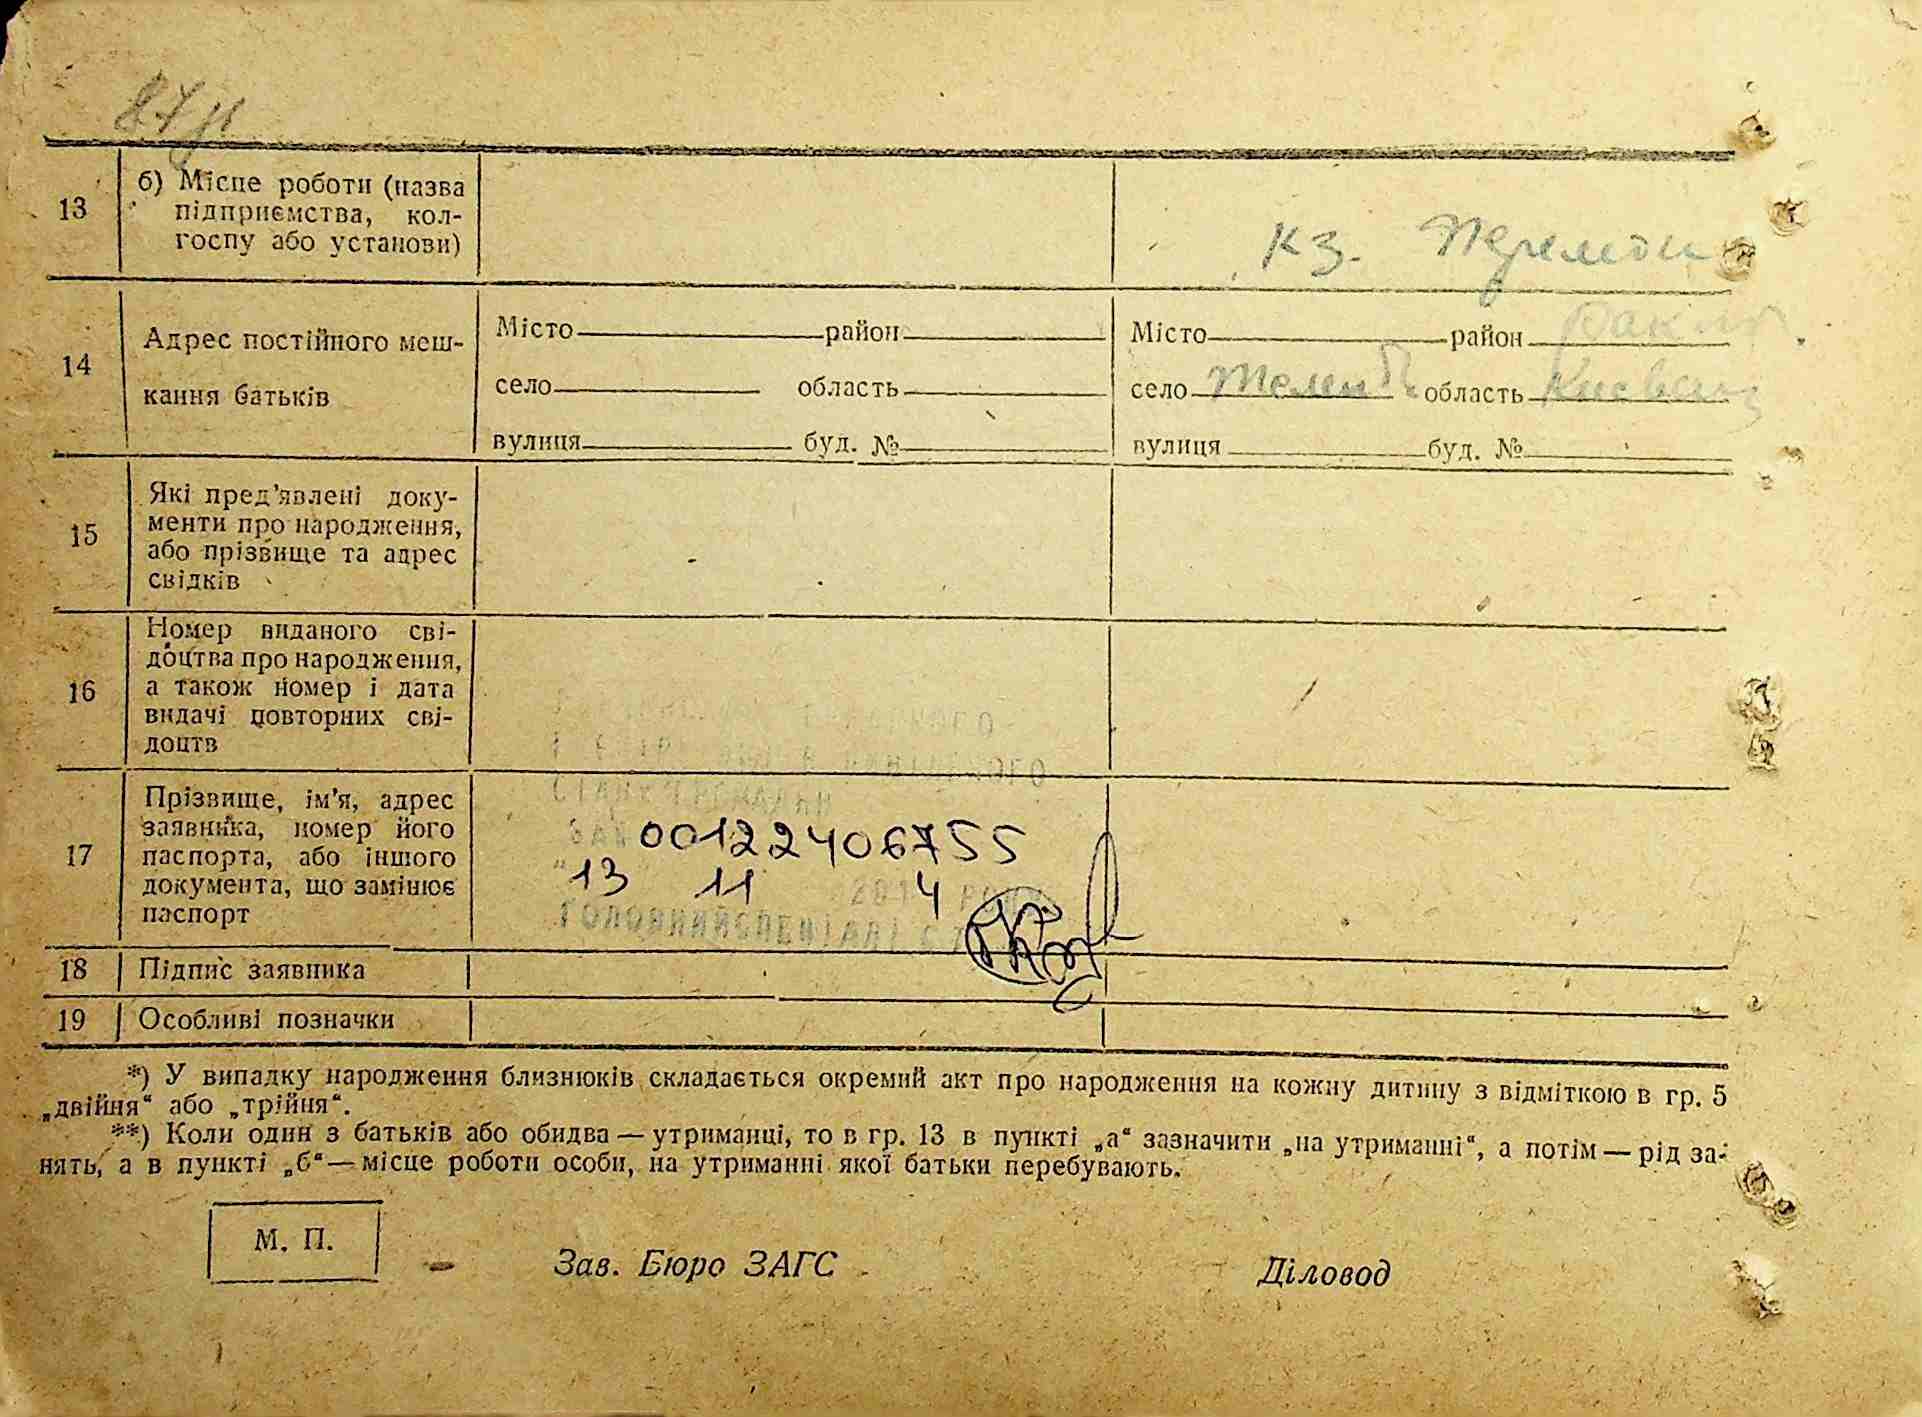 13
б) Місце роботи (назва
підприємства, кол-
госпу або установи)
кз.
14
Адрес постійного меш-
кання батьків
Місто район
село область
вулиця буд. №
Місто район
село область
вулиця буд. №
15
Які пред'явлені доку-
менти про народження,
або прізвище та адрес
свідків
16
Номер виданого сві-
доцтва про народження,
а також номер і дата
видачі повторних сві-
доцтв
17
Прізвище, ім'я, адрес
заявника, номер його
паспорта, або іншого
документа, що замінює
паспорт
00122406755
13 11 4
18
Підпис заявника
19
Особливі позначки
*) У випадку народження близнюків складається окремий акт про народження на кожну дитину з відміткою в гр. 5
„двійня“ або „трійня“.
**) Коли один з батьків або обидва — утриманці, то в гр. 13 в пункті „а“ зазначити „на утриманні“, а потім — рід за-
нять, а в пункті „б“ — місце роботи особи, на утриманні якої батьки перебувають.
М. П.
Зав. Бюро ЗАГС
Діловод